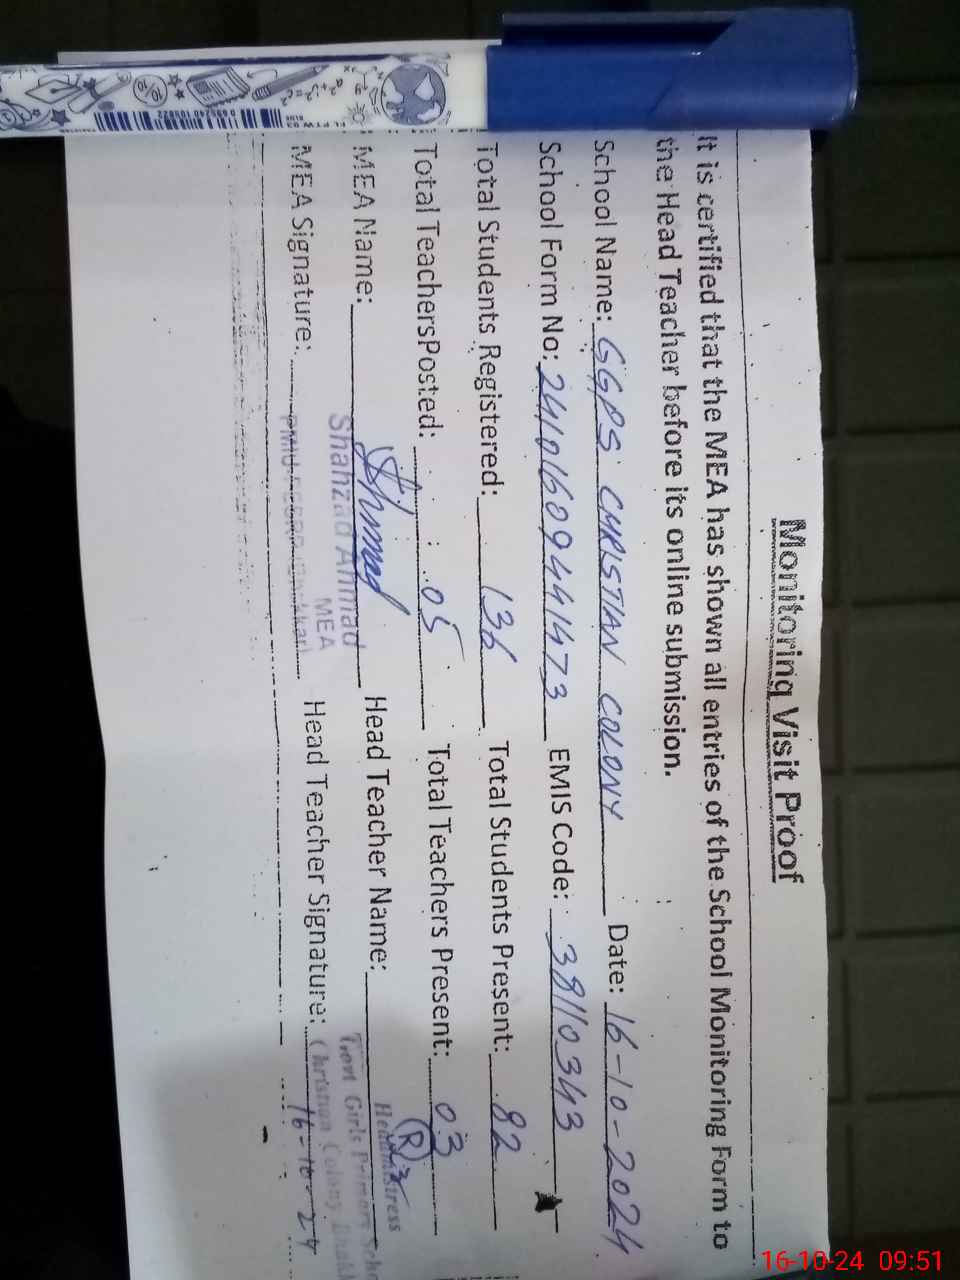 Monitoring Visit Proof
It is certified that the MEA has shown all entries of the School Monitoring Form to
the Head Teacher before its online submission.
School Name: GGPS CHRISTIAN COLONY Date: 16-10-2024
School Form No: 24101609441473 EMIS Code: 38110343
Total Students Registered: 136 Total Students Present: 82
Total TeachersPosted: 05 Total Teachers Present: 03
MEA Name: Head Teacher Name:
Shahzad Ahmad
MEA
Headmistress
Govt Girls Primary
MEA Signature: Head Teacher Signature:
Christian Colony
16-10-24
16-10-24 09:51